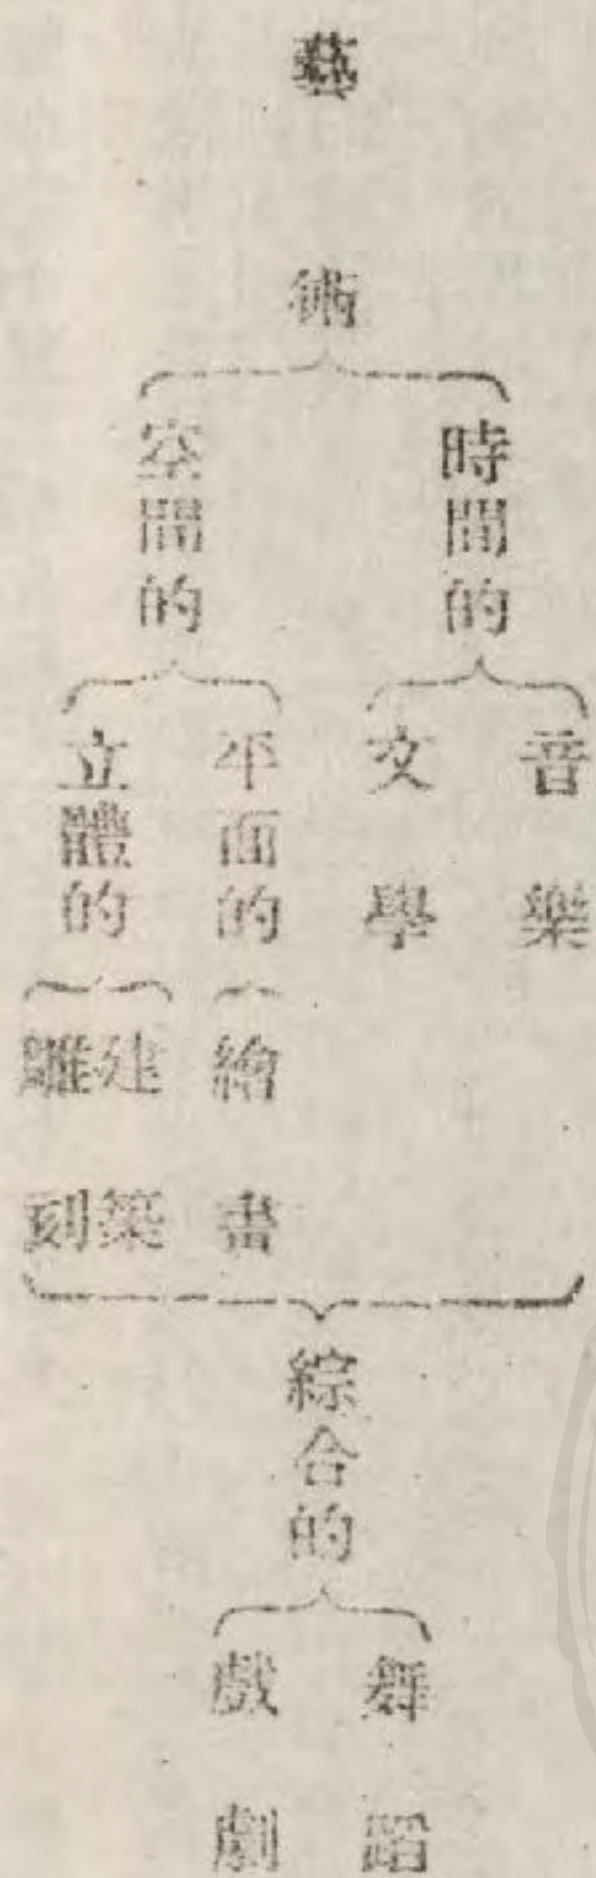 藝術
時間的
音樂
文學
空間的
平面的
繪畫
立體的
建築
雕刻
綜合的
舞蹈
戲劇